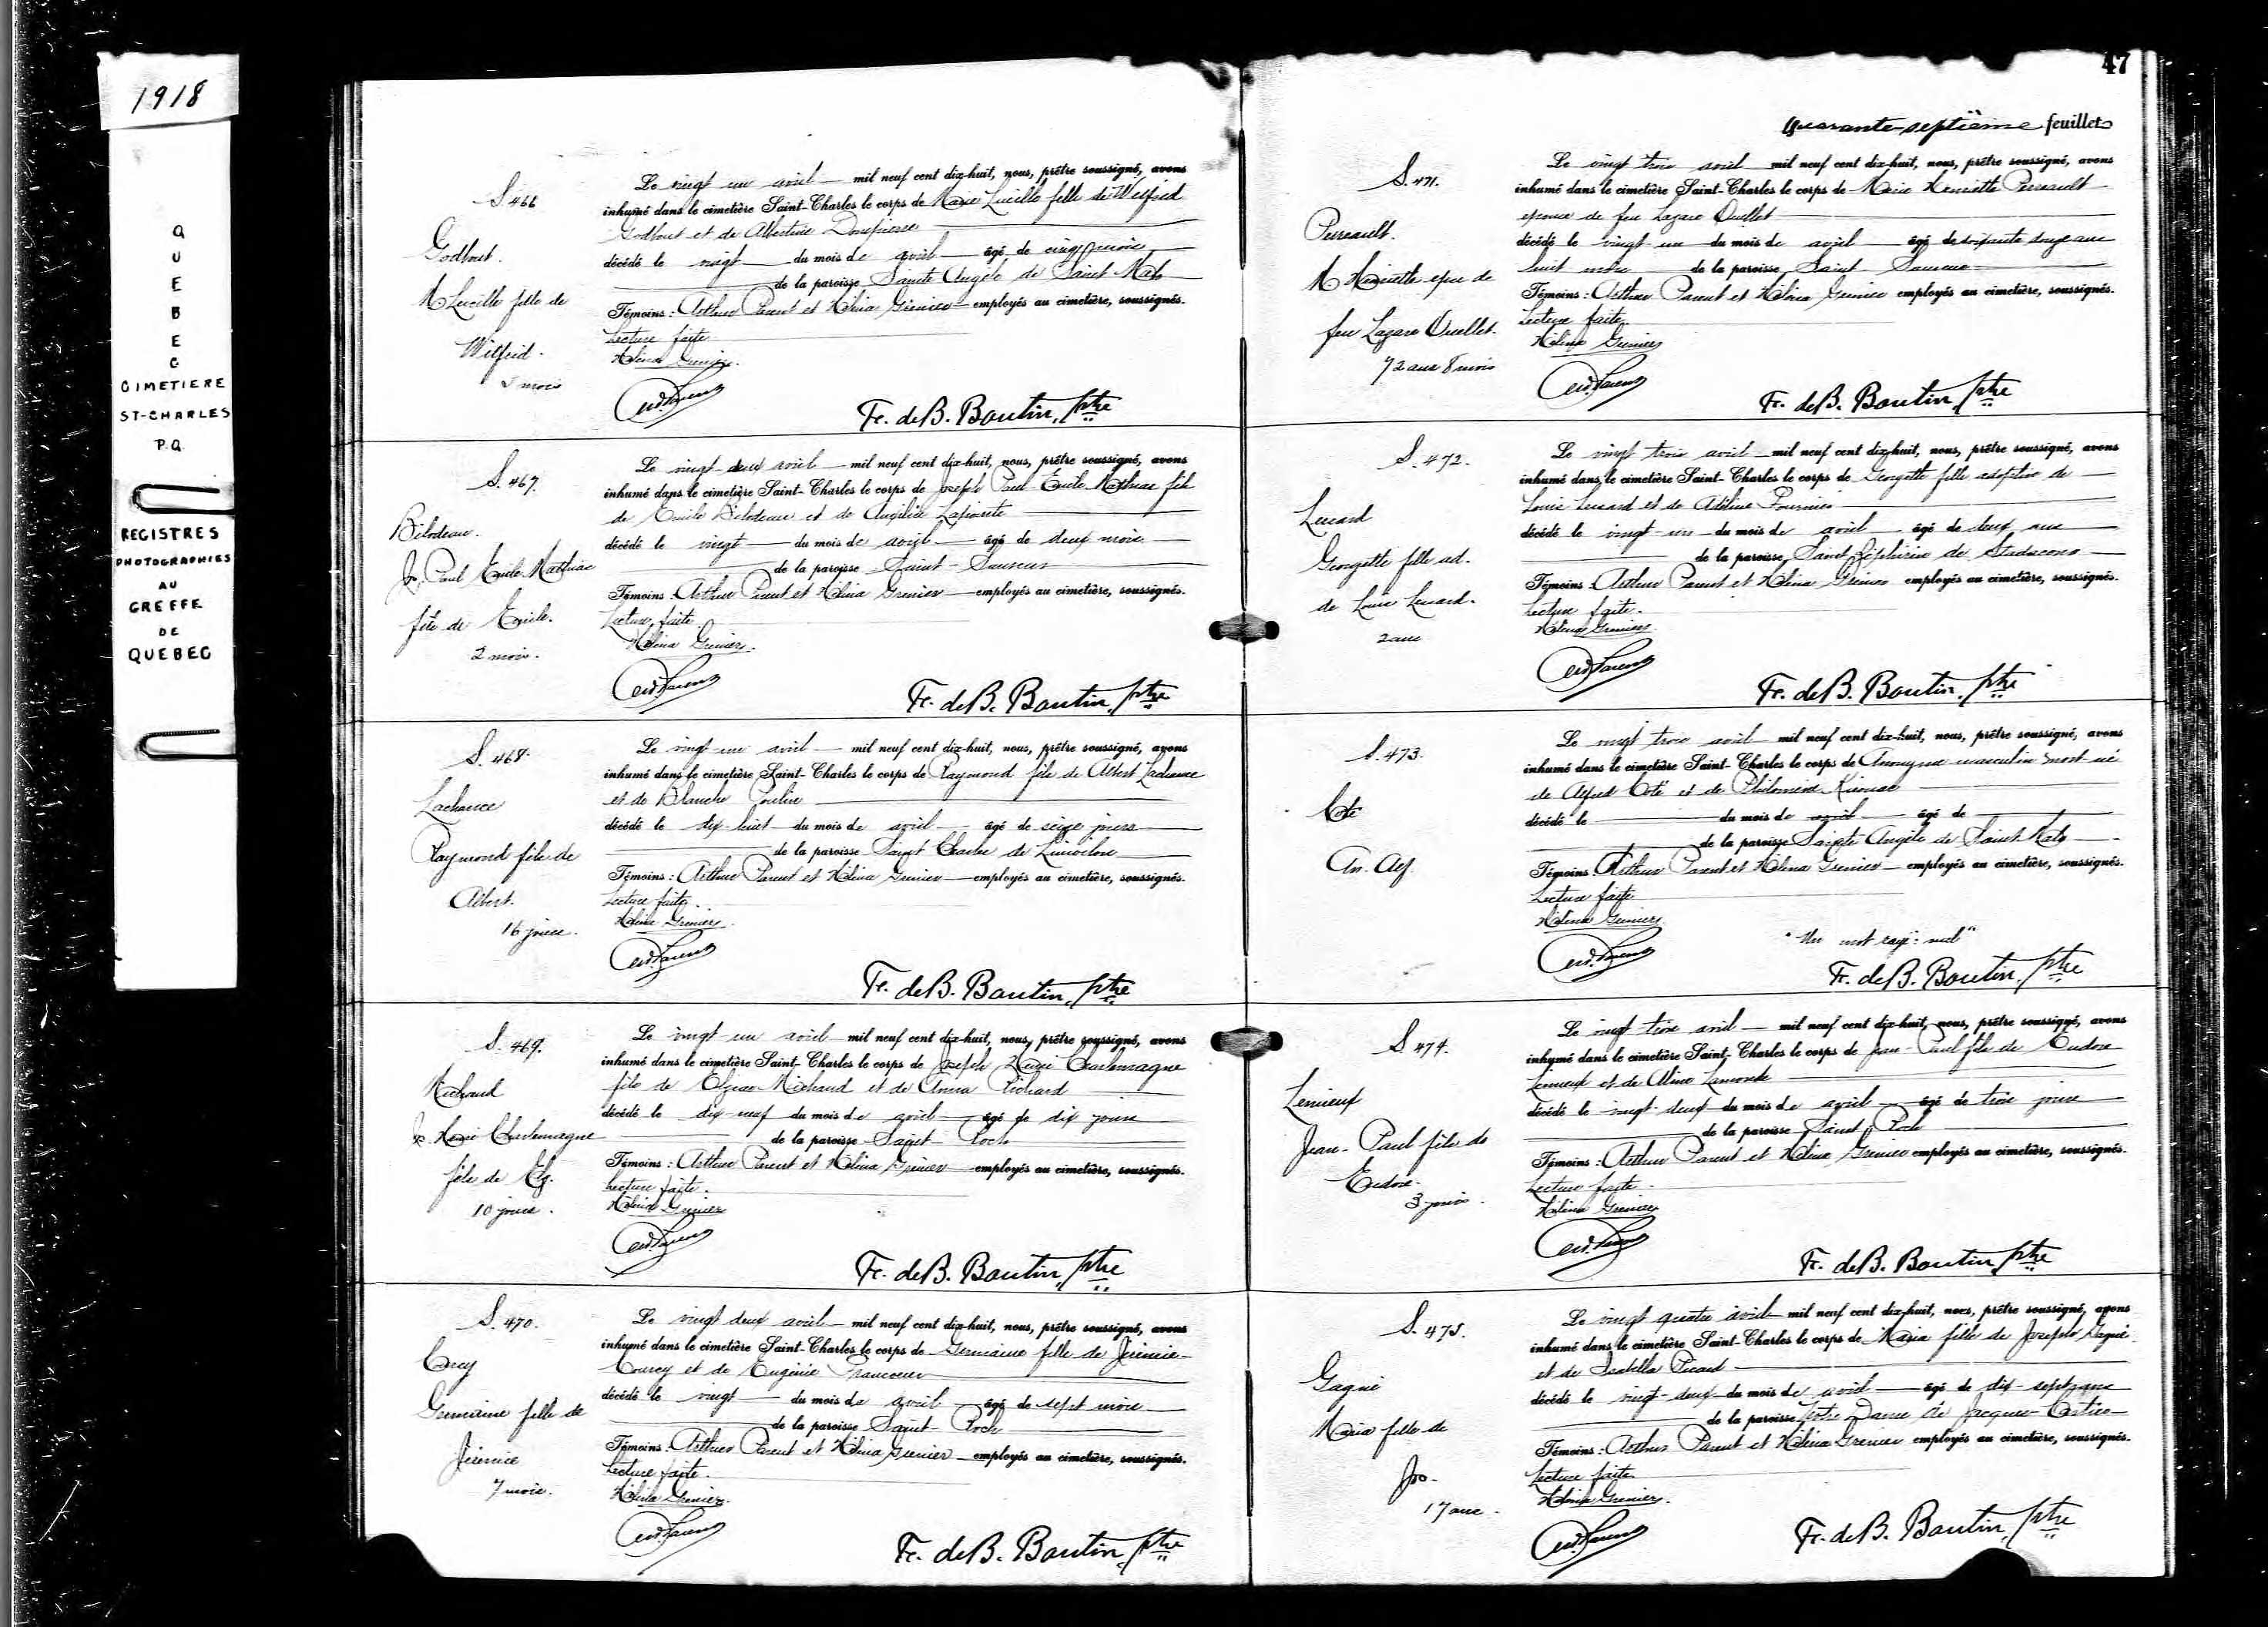 1918
QUEBEC
CIMETIERE
ST-CHARLES
P.Q.
REGISTRES
PHOTOGRAPHIES
AU
GREFFE
DE
QUEBEC
S 466
Godbout.
M Lucille fille de
Wilfrid.
5 mois
Le vingt un avril mil neuf cent dix-huit, nous, prêtre soussigné, avons
inhumé dans le cimetière Saint-Charles le corps de Marie Lucille fille de Wilfrid
Godbout et de Albertine
décédé le vingt du mois de avril âgé de cinq mois
de la paroisse Sainte Angèle de Saint Malo
Témoins : Arthur Parent et Hélina Grenier employés au cimetière, soussignés.
Lecture faite.
Hélina Grenier.
Fr. de B. Boutin, ptre
S. 467.
Bilodeau.
Jos. Paul Emile Mathias
fils de Emile.
2 mois.
Le vingt-deux avril mil neuf cent dix-huit, nous, prêtre soussigné, avons
inhumé dans le cimetière Saint-Charles le corps de Joseph Paul-Emile Mathias fils
de Emile Bilodeau et de Angélina Lapointe
décédé le vingt du mois de avril âgé de deux mois
de la paroisse Saint-Sauveur
Témoins : Arthur Parent et Hélina Grenier employés au cimetière, soussignés.
Lecture faite.
Hélina Grenier.
Fr. de B. Boutin, ptre
S. 468.
Lachance
Raymond fils de
Albert.
16 jours.
Le vingt-un avril mil neuf cent dix-huit, nous, prêtre soussigné, avons
inhumé dans le cimetière Saint-Charles le corps de Raymond fils de Albert Lachance
et de Blanche Poulin
décédé le dix-huit du mois de avril âgé de seize jours
de la paroisse Saint Charles de Limoilou
Témoins : Arthur Parent et Hélina Grenier employés au cimetière, soussignés.
Lecture faite.
Hélina Grenier.
Fr. de B. Boutin, ptre
S. 469.
Michaud
Jos. Henri Charlemagne
fils de Elz.
10 jours.
Le vingt un avril mil neuf cent dix-huit, nous, prêtre soussigné, avons
inhumé dans le cimetière Saint-Charles le corps de Joseph Henri Charlemagne
fils de Elzéar Michaud et de Anna Richard
décédé le dix-neuf du mois de avril âgé de dix jours
de la paroisse Saint-Roch
Témoins : Arthur Parent et Hélina Grenier employés au cimetière, soussignés.
Lecture faite.
Hélina Grenier
Fr. de B. Boutin, ptre
S. 470.
Germaine fille de
Jérémie
7 mois.
Le vingt deux avril mil neuf cent dix-huit, nous, prêtre soussigné, avons
inhumé dans le cimetière Saint-Charles le corps de Germaine fille de Jérémie
Courcy et de Eugénie Francoeur
décédé le vingt du mois de avril âgé de sept mois
de la paroisse Saint-Roch
Témoins : Arthur Parent et Hélina Grenier employés au cimetière, soussignés.
Lecture faite.
Hélina Grenier.
Fr. de B. Boutin, ptre
47
Quarante-septième feuillet
S. 471.
Perreault.
M Henriette épse de
feu Lazare Ouellet.
72 ans 8 mois
Le vingt trois avril mil neuf cent dix-huit, nous, prêtre soussigné, avons
inhumé dans le cimetière Saint-Charles le corps de Marie Henriette Perreault
épouse de feu Lazare Ouellet
décédé le vingt-un du mois de avril âgé de soixante douze ans
huit mois de la paroisse Saint-Sauveur
Témoins : Arthur Parent et Hélina Grenier employés au cimetière, soussignés.
Lecture faite.
Hélina Grenier
Fr. de B. Boutin, ptre
S. 472.
Georgette fille ad.
2 ans
Le vingt trois avril mil neuf cent dix-huit, nous, prêtre soussigné, avons
inhumé dans le cimetière Saint-Charles le corps de Georgette fille adoptive de
Louis et de Adélina Fournier
décédé le vingt-un du mois de avril âgé de deux ans
de la paroisse Saint Zéphirin de Stadacona
Témoins : Arthur Parent et Hélina Grenier employés au cimetière, soussignés.
Lecture faite.
Hélina Grenier.
Fr. de B. Boutin, ptre
S. 473.
Coté
An. Alf.
Le vingt trois avril mil neuf cent dix-huit, nous, prêtre soussigné, avons
inhumé dans le cimetière Saint-Charles le corps de Anonyme masculin mort-né
de Alfred Coté et de Philomène Kirouac
décédé le du mois de avril âgé de
de la paroisse Sainte Angèle de Saint Malo
Témoins : Arthur Parent et Hélina Grenier employés au cimetière, soussignés.
Lecture faite
Hélina Grenier
"Un mot rayé: nul"
Fr. de B. Boutin, ptre
S. 474.
Lemieux
Jean-Paul fils de
Eudore.
3 jours.
Le vingt trois avril mil neuf cent dix-huit, nous, prêtre soussigné, avons
inhumé dans le cimetière Saint-Charles le corps de Jean-Paul fils de Eudore
Lemieux et de Aline Lamonde
décédé le vingt-deux du mois de avril âgé de trois jours
de la paroisse Saint-Roch
Témoins : Arthur Parent et Hélina Grenier employés au cimetière, soussignés.
Lecture faite.
Hélina Grenier
Fr. de B. Boutin, ptre
S. 475.
Gagné
Maria fille de
Jos.
17 ans.
Le vingt quatre avril mil neuf cent dix-huit, nous, prêtre soussigné, avons
inhumé dans le cimetière Saint-Charles le corps de Maria fille de Joseph Gagné
et de Isabella Picard
décédé le vingt-deux du mois de avril âgé de dix-sept ans
de la paroisse Notre Dame de Jacques-Cartier
Témoins : Arthur Parent et Hélina Grenier employés au cimetière, soussignés.
Lecture faite.
Hélina Grenier.
Fr. de B. Boutin, ptre